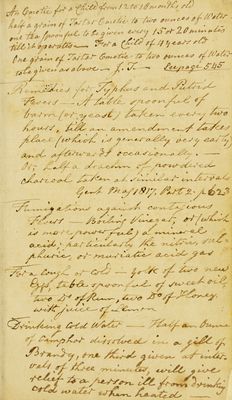 An Emetic for a Child from 12 to 18 months old
half a grain of Tartar Emetic to two ounces of Water
one tea spoonful to be given every 15 or 20 minutes
till it operates — For a Child of 4 years old
One grain of Tartar Emetic to two ounces of Water
to be given as above — J. T. — See page 545
Remedies for Typhus and Putrid
Fevers — A table spoonful of
barm (or yeast) taken every two
hours, till an amendment takes
place (which is generally very early)
and afterwards occasionally —
Or, half a dracm of powdered
charcoal taken at similar intervals
Gent. Mag. 1817, Part 2. p. 623
Fumigations against contagious
Fevers — Boiling Vinegar, or (which
is more powerful) a mineral
acid; particularly the nitric, sul-
phuric, or muriatic acid gas
For a Cough or Cold — yolk of two new
Eggs, table spoonful of sweet oil,
two Do of Rum, two Do of Honey
with juice of Lemon
Drinking Cold Water — Half an Ounce
of Camphor dissolved in a gill of
Brandy, one third given at inter-
vals of three minutes, will give
relief to a person ill from drinking
cold water when heated —